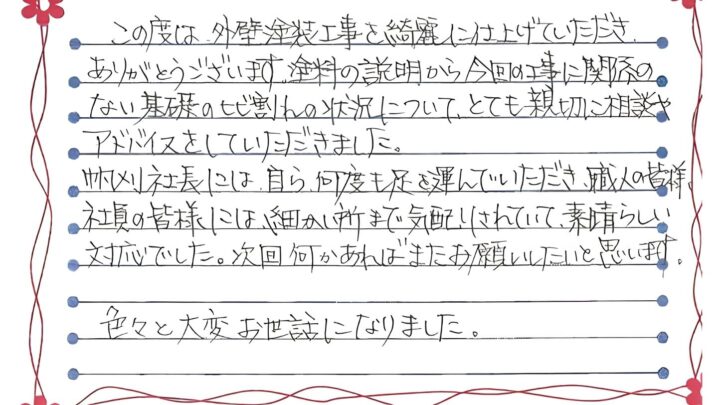 この度は、外壁塗装工事を綺麗に仕上げていただき、
ありがとうございます。塗料の説明から今回の工事に関係の
ない基礎のヒビ割れの状況について、とても親切に相談や
アドバイスをしていただきました。
帆刈社長には、自ら、何度も足を運んでいただき、職人の皆様、
社員の皆様には、細かい所まで気配りされていて、素晴らしい
対応でした。次回何かあればまたお願いしたいと思います。
色々と大変お世話になりました。